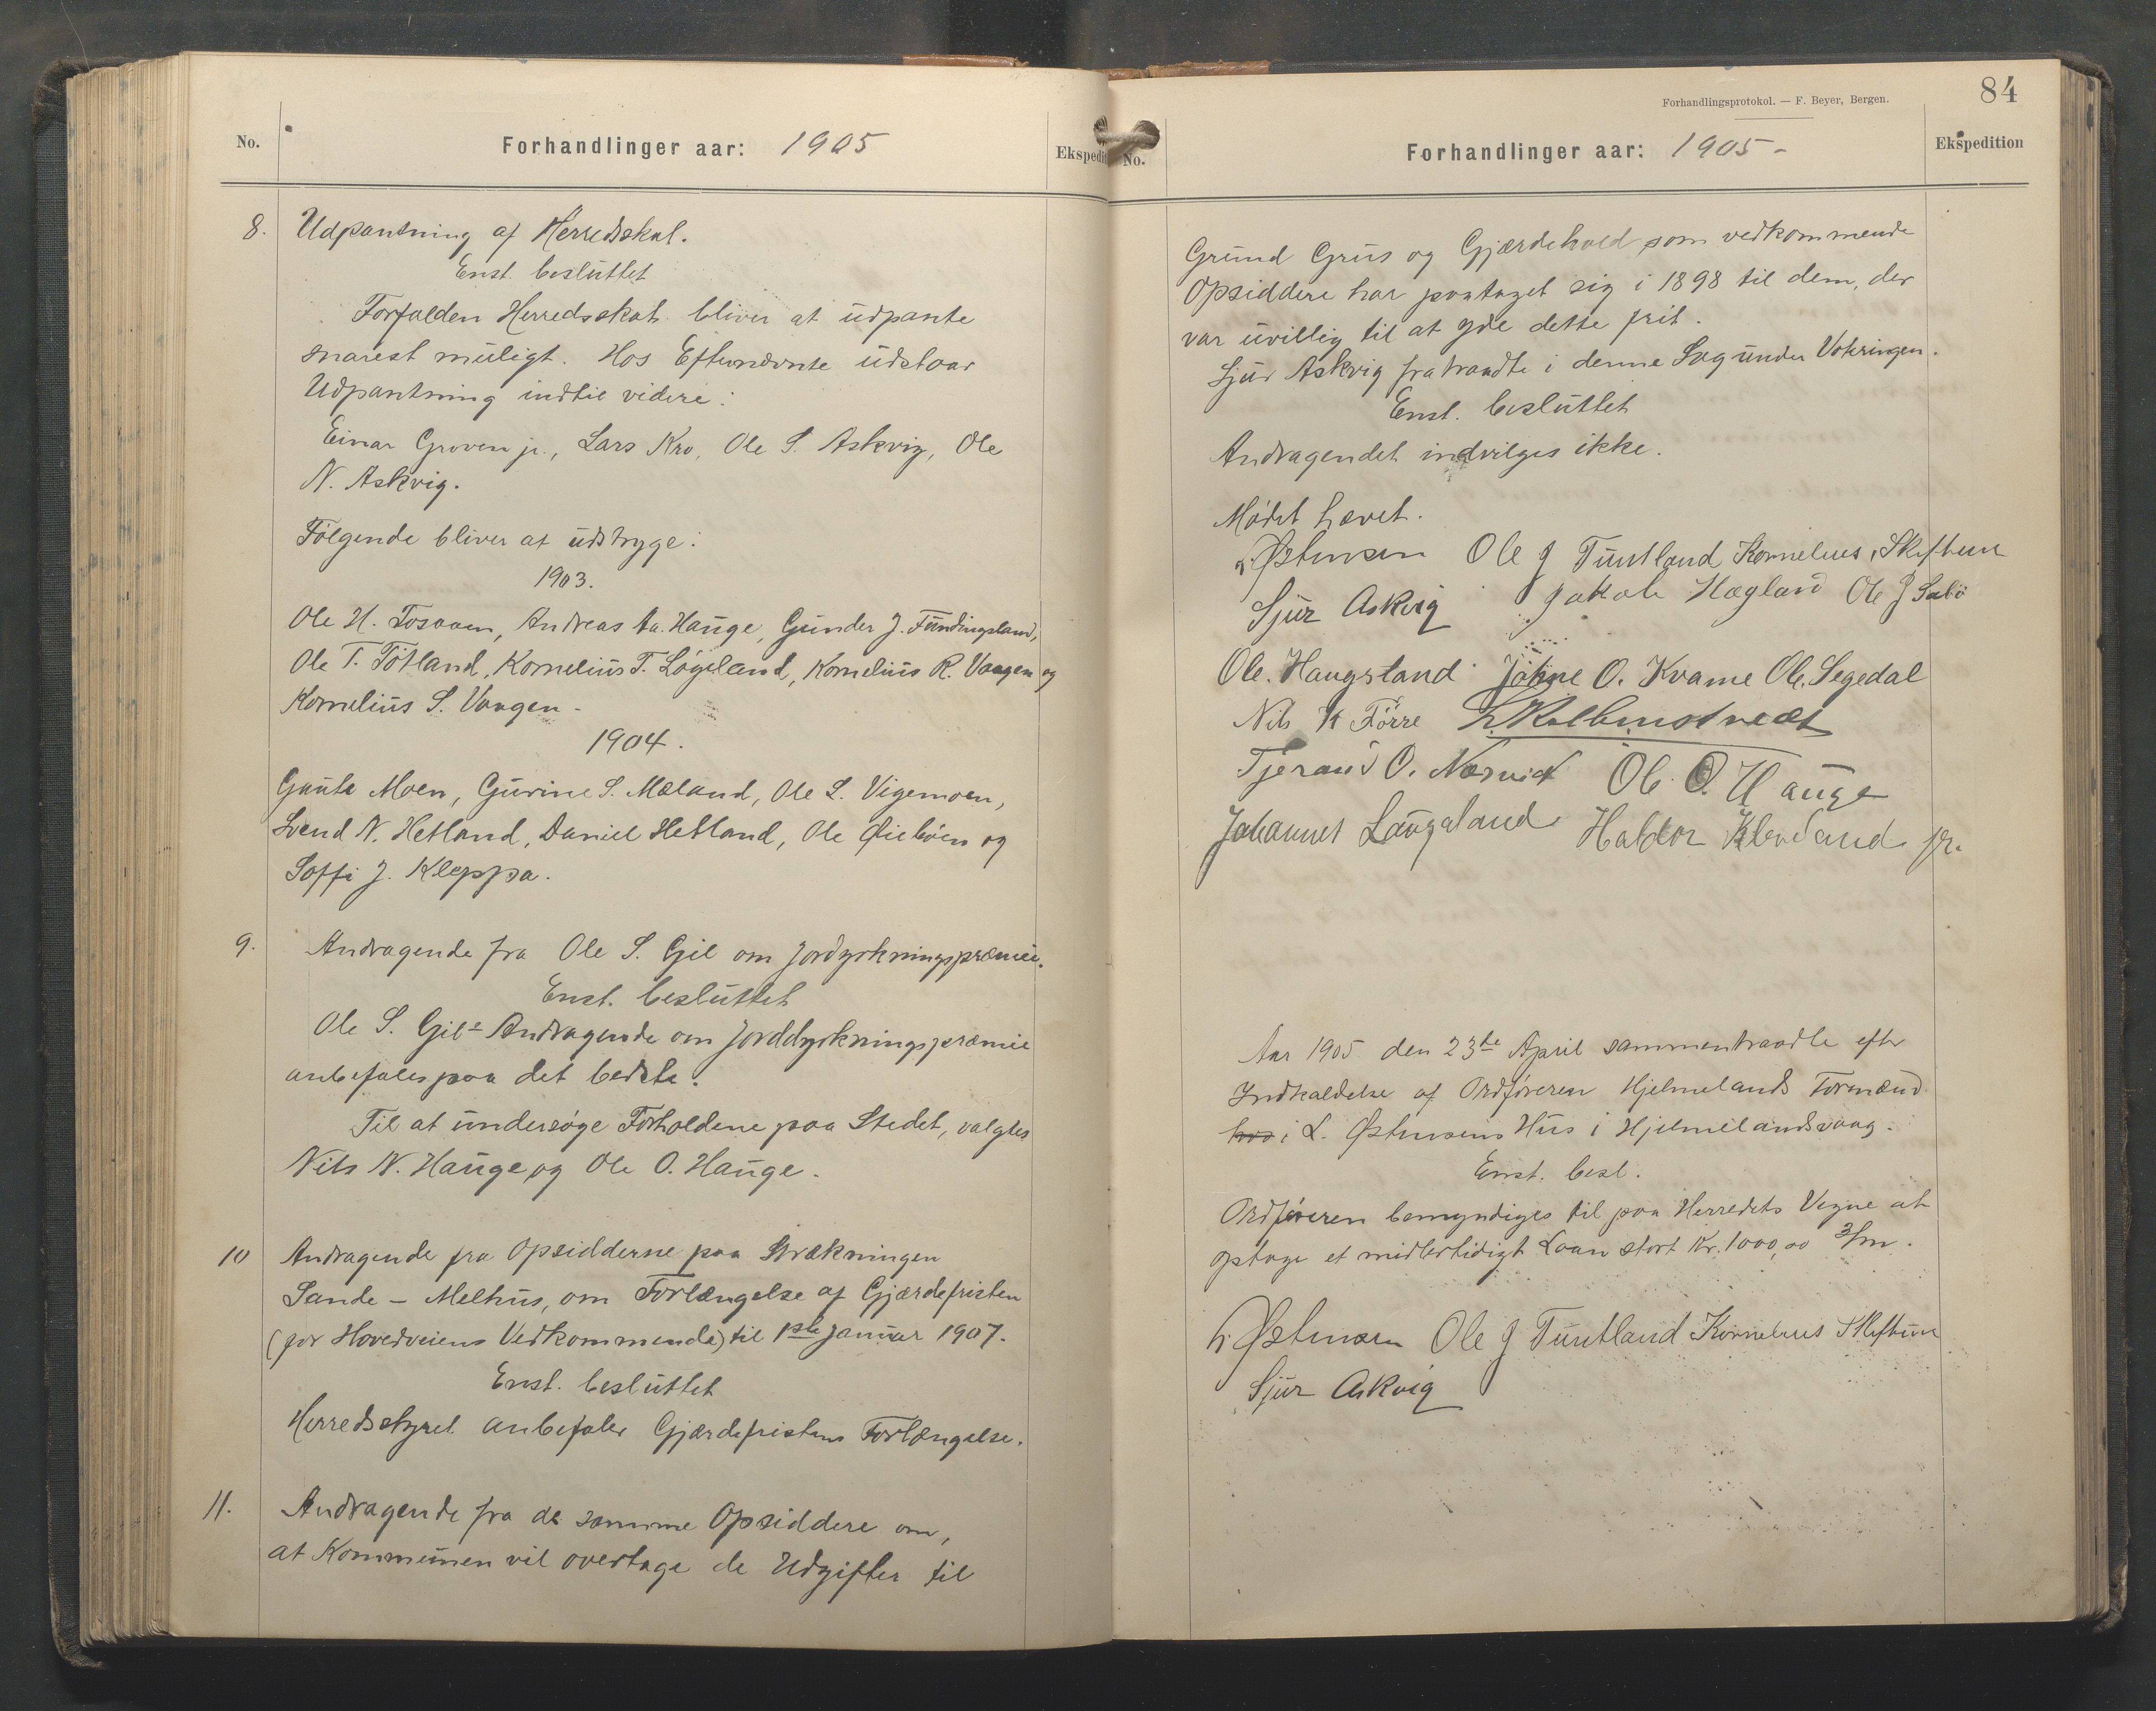 No.
Forhandlinger aar: 1905
Ekspedit
8. Udpantning af Herredsskat.
Enst. besluttet
Forfalden Herredsskat bliver at udpante
snarest muligt. Hos Efternævnte udstaar
Udpantning indtil videre:
Einar Groven jr., Lars Kro, Ole S. Askvig, Ole
N. Askvig.
Følgende bliver at udstryge:
1903.
Ole H. Tosaaen, Andreas Aa. Hauge, Gunder J. Fundingsland,
Ole T. Tøtland, Kornelius T. Løgeland, Kornelius R. Vaagen og
Kornelius S. Vaagen -
1904.
Gauta Moen, Gurine S. Mæland, Ole L. Vigemoen,
Svend N. Hetland, Daniel Hetland, Ole Øiebøen og
Soffi J. Kleppa.
9. Andragende fra Ole S. Gil om Jordyrkningspræmie.
Enst. besluttet
Ole S. Gils Andragende om Jorddyrkningspræmie
anbefales paa det bedste.
Til at undersøge Forholdene paa Stedet, valgtes
Nils N. Hauge og Ole O. Hauge.
10 Andragende fra Opsidderne paa Strækningen
Sande - Melhus, om Forlængelse af Gjærdefristen
(for Hovedveiens Vedkommende) til 1ste Januar 1907.
Enst. besluttet
Herredsstyret anbefaler Gjærdefristens Forlængelse.
11. Andragende fra de samme Opsiddere om,
at Kommunen vil overtage de Udgifter til
Forhandlingsprotokol. — F. Beyer, Bergen.
84
No.
Forhandlinger aar: 1905 -
Ekspedition
Grund Grus og Gjærdehold som vedkommende
Opsiddere har paataget sig i 1898 til dem, der
var uvillig til at yde dette frit.
Sjur Askvig fratraadte i denne Sag under Voteringen.
Enst. besluttet
Andragendet indvilges ikke.
Mødet hævet.
L. Østensen Ole J Tuntland Kornelius Skiftun
Sjur Askvig Jakob Hagland Ole J Sabø
Ole Haugstand Johne O. Kvame Ol. Segedal
Nils K Førre
Tjerand O. Næsvik Ole O. Hauge
Johannes Laugaland Haldor Kleveland jr.
Aar 1905 den 23de April sammentraadte efter
Indkaldelse af Ordføreren Hjelmelands Formænd
hos i L. Østensens Hus i Hjelmelandsvaag.
Enst. besl.
Ordføreren bemyndiges til paa Herredets Vegne at
optage et midlertidigt Laan stort Kr. 1000,00 3/m.
L. Østensen Ole J Tuntland Kornelius Skiftun
Sjur Askvig